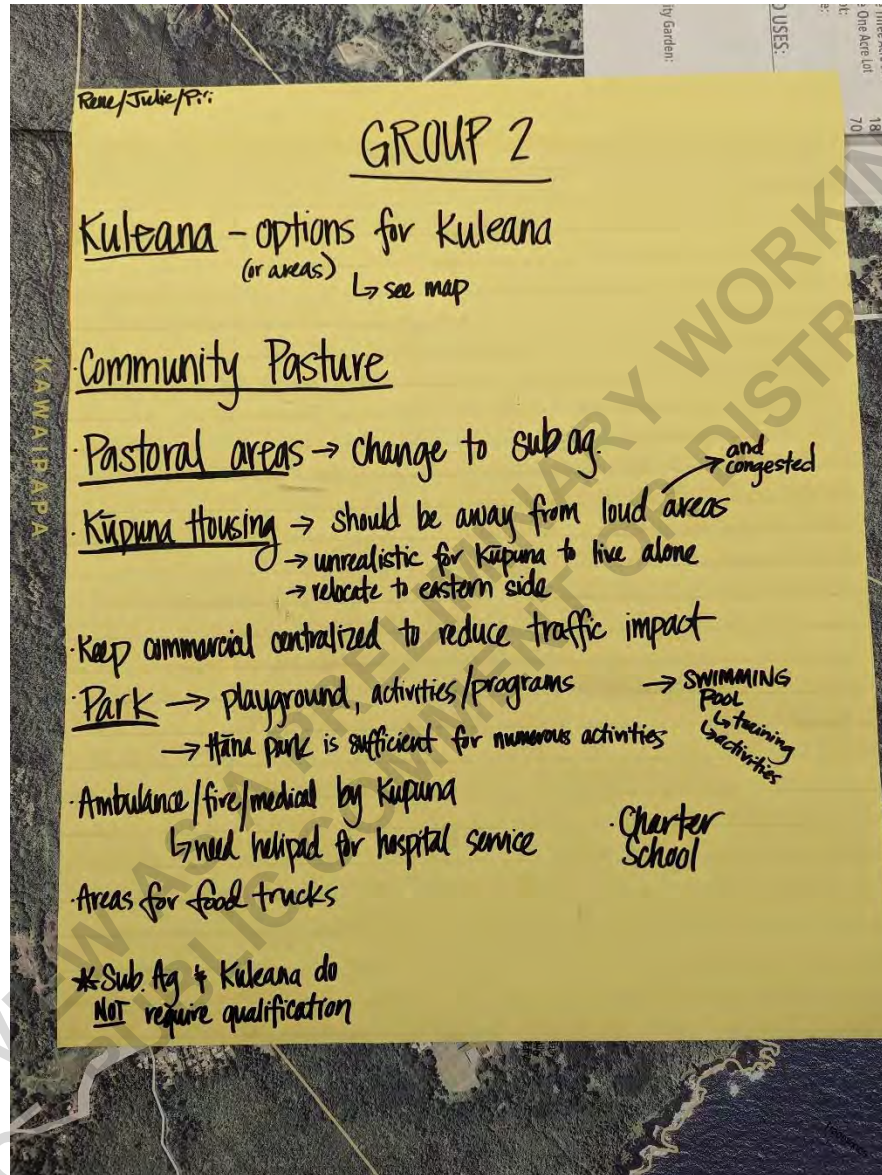 ity Garden:
D USES:
e One Acre Lot
18
70
Rene/Julie/Pi'i
GROUP 2
Kuleana - options for Kuleana
(or areas)
↳ see map
KAWAIPAPA
·Community Pasture
·Pastoral areas → change to sub ag.
·Kūpuna Housing → should be away from loud areas → and congested
→ unrealistic for Kūpuna to live alone
→ relocate to eastern side
·Keep commercial centralized to reduce traffic impact
·Park → playground, activities/programs → SWIMMING POOL
↳ training
↳ activities
→ Hāna park is sufficient for numerous activities
·Ambulance/fire/medical by Kupuna
↳ need helipad for hospital service
·Charter
School
·Areas for food trucks
*Sub. Ag & Kuleana do
NOT require qualification